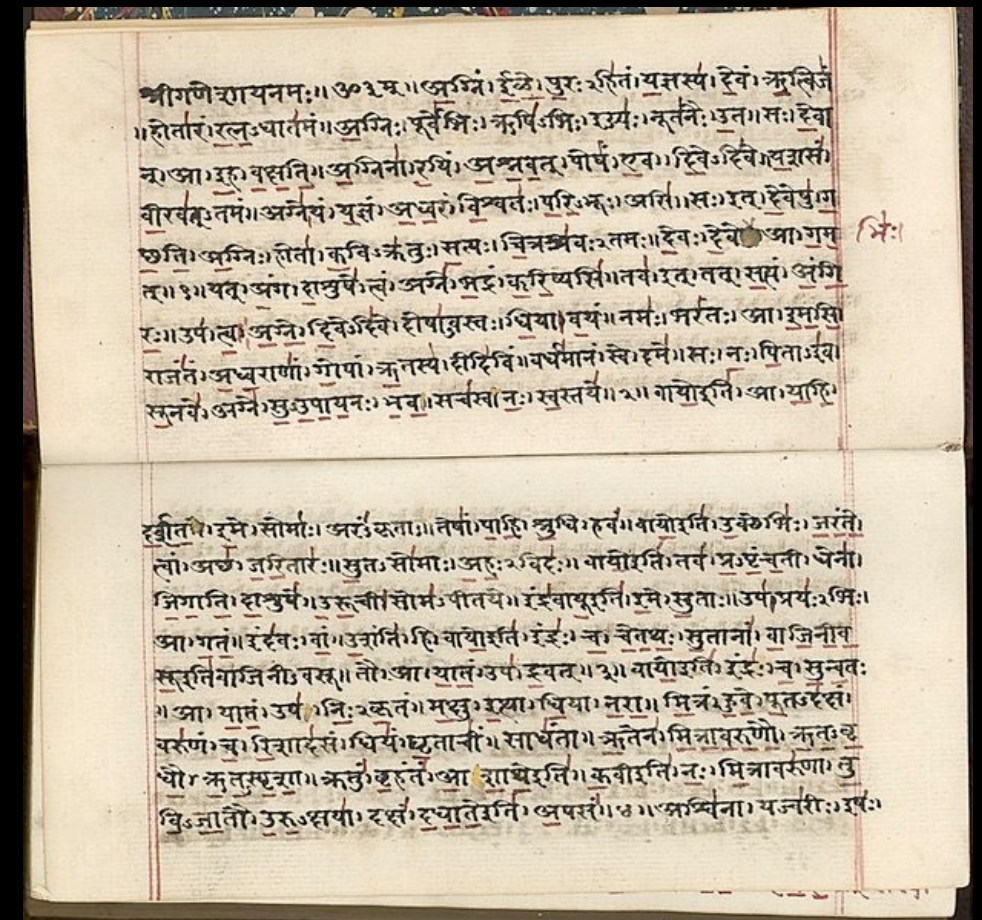 श्रीगणेशायनमः॥ॐ३म्॥अ॒ग्निं।ई॒ळे॒।पु॒रःऽहि॑तं।य॒ज्ञस्य॑।दे॒वं।ऋ॒त्विजं॑
॥होता॑रं।र॒त्न॒ऽधात॑मं॥अ॒ग्निः।पूर्वे॑भिः।ऋषि॑ऽभिः।ईड्यः॑।नूत॑नैः।उ॒त॥सः।दे॒वा
न्।आ।इ॒ह।व॒क्ष॒ति॒॥अ॒ग्निना॑।र॒यिं।अ॒श्न॒व॒त्।पोषं॑।ए॒व।दि॒वेऽदि॑वे॥य॒शसं॑।
वी॒रव॑त्ऽतमं॥अग्ने॑।यं।य॒ज्ञं।अ॒ध्व॒रं।वि॒श्वतः॑।प॒रि॒ऽभूः।असि॑॥सः।इत्।दे॒वेषु॑।ग॒
च्छ॒ति॒।अ॒ग्निः।होता॑।क॒विऽक्र॑तुः।स॒त्यः।चि॒त्रश्र॑वःऽतमः॥दे॒वः।दे॒वे आ।ग॒म॒
भिः॑।
त्॥१॥यत्।अं॒ग।दा॒शुषे॑।त्वं।अग्ने॑।भ॒द्रं।क॒रि॒ष्यसि॑॥तव॑।इत्।तत्।स॒त्यं।अं॒गि॒
रः॒॥उप॑।त्वा॒।अ॒ग्ने॒।दि॒वेऽदि॑वे।दोषा॑ऽवस्तः।धि॒या।व॒यं॥नमः॑।भरं॑तः।आ।इ॒म॒सि॒
राजं॑तं।अ॒ध्व॒राणां॑।गो॒पां।ऋ॒तस्य॑।दीदि॑विं॥वर्ध॑मानं।स्वे।दमे॑॥सः।नः॒।पि॒ताऽइ॑व।
सू॒नवे॑।अग्ने॑।सु॒ऽउ॒पा॒य॒नः।भ॒व॒॥सच॑स्व।नः॒।स्व॒स्तये॑॥२॥वायो॒इति॑।आ।या॒हि॒।
द॒र्श॒त॒।इ॒मे।सोमाः॑।अरं॑ऽकृताः॥तेषां॑।पा॒हि॒।श्रु॒धि।हवं॑॥वायो॒इति॑।उ॒क्थेभिः॑।जरं॑ते।
त्वां।अच्छ॑।ज॒रि॒तारः॑॥सु॒तऽसो॑माः।अ॒हः॒ऽविदः॑॥वायो॒इति॑।तव॑।प्र॒ऽपृं॒च॒ती।धेना॑।
जि॒गा॒ति॒।दा॒शुषे॑॥उ॒रू॒ची।सोम॑ऽपीतये॥इंद्र॑वायू॒इति॑।इ॒मे।सु॒ताः॥उप॑।प्रयः॑ऽभिः।
आ।ग॒तं॒॥इंद॑वः।वां॒।उ॒शंति॑।हि॥वायो॒इति॑।इंद्रः॑।च॒।चे॒त॒थः॒।सु॒तानां॑।वा॒जि॒नी॒व॒
सू॒इति॑वाजिनीऽवसू॥तौ।आ।या॒तं॒।उप॑।द्र॒वत्॥३॥वायो॒इति॑।इंद्रः॑।च॒।सु॒न्व॒तः
॥आ।या॒तं॒।उप॑।निः॒ऽकृ॒तं॥म॒क्षु।इ॒त्था।धि॒या।न॒रा॒॥मि॒त्रं।हु॒वे॒।पू॒तऽद॑क्षं।
वरु॑णं।च॒।रि॒शाद॑सं॥धियं॑।घृ॒ताचीं॑।साधं॑ता॥ऋ॒तेन॑।मि॒त्रा॒व॒रु॒णौ॒।ऋ॒त॒ऽवृ॒
धौ॒।ऋ॒त॒ऽस्पृ॒शा॒॥क्रतुं॑।बृ॒हंतं॑।आ॒शा॒थे॒इति॑॥क॒वीइति॑।नः॒।मि॒त्रावरु॑णा।तु॒
वि॒ऽजा॒तौ।उ॒रु॒ऽक्षया॑।दक्षं॑।द॒धा॒ते॒इति॑।अ॒पसं॑॥४॥अश्वि॑ना।यज्व॑रीः।इषः॑।